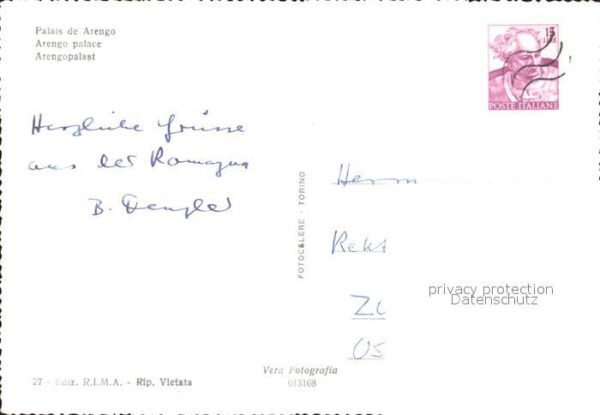 Palais de Arengo
Arengo palace
Arengopalast
15
LIRE
POSTE ITALIANE
Herzliche Grüsse
aus der Romagna
B. Dengler
Herrn
Rekt
Zi
Us
FOTOCELERE - TORINO
privacy protection
Datenschutz
Vera Fotografia
27 - Ediz. R.I.M.A. - Rip. Vietata
013168